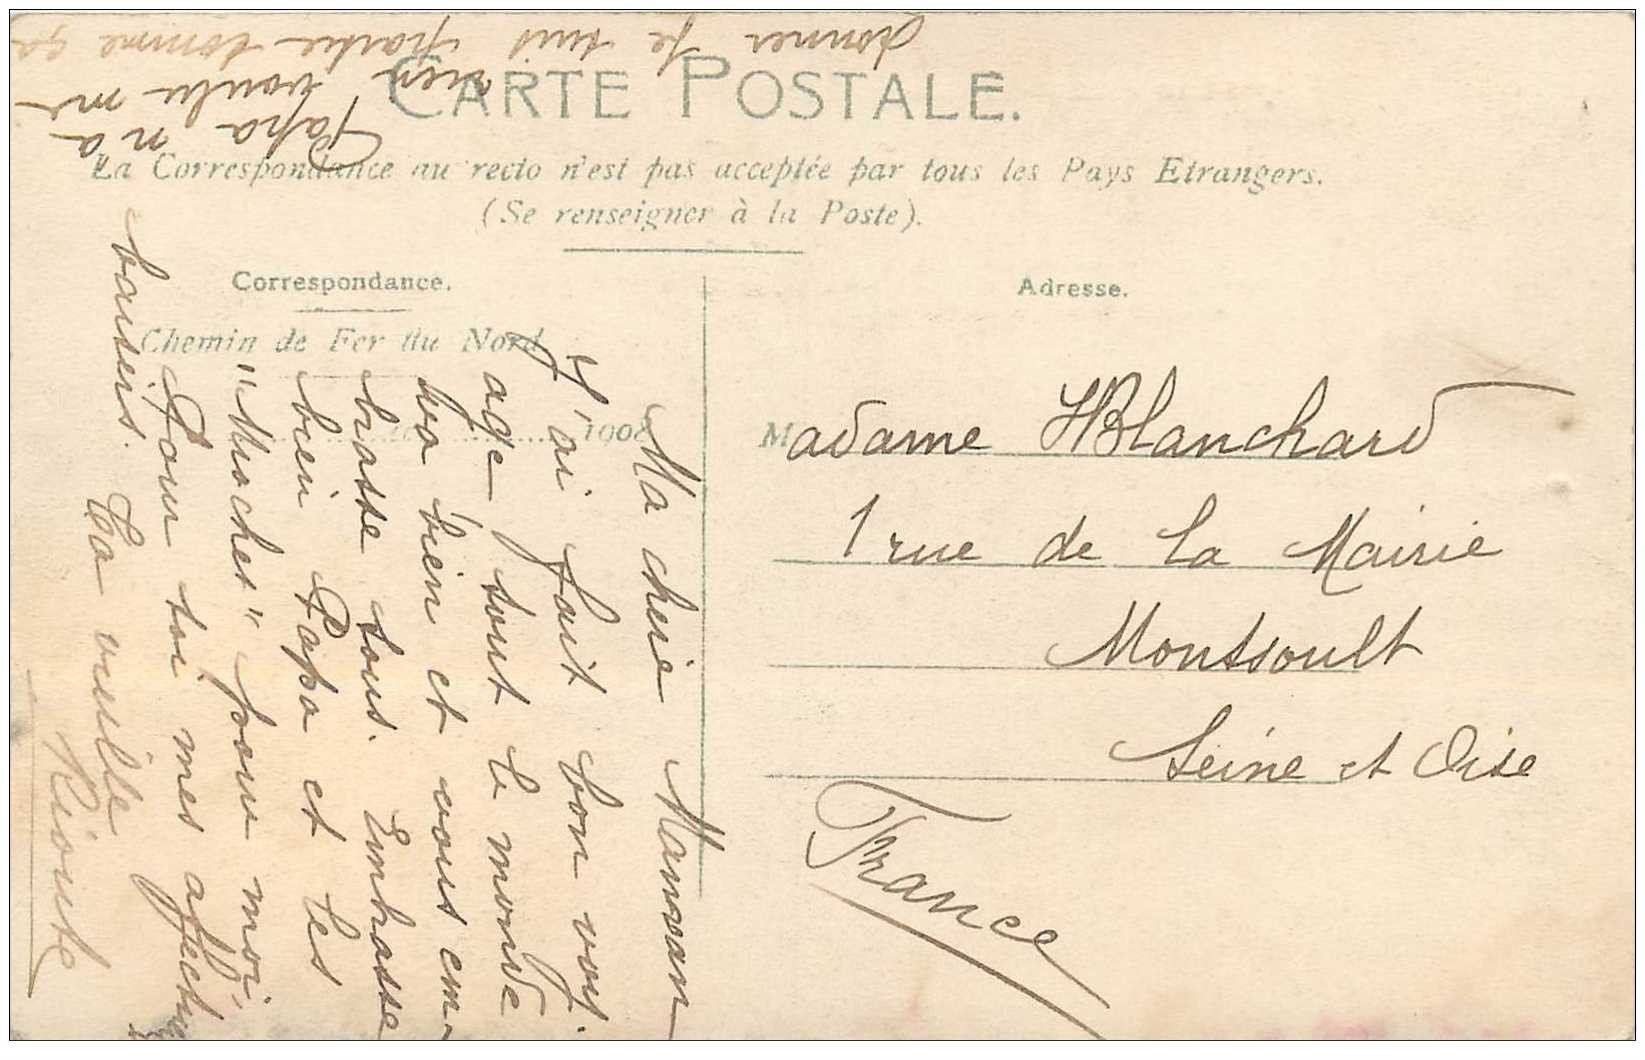 CARTE POSTALE.
La Correspondance au recto n'est pas acceptée par tous les Pays Etrangers.
(Se renseigner à la Poste).
Correspondance.
Chemin de Fer du Nord
1908
Ma chère Maman
J'ai fait bon voy-
age tout le monde
va bien et vous em-
brasse tous. Embrasse
bien Papa et les
"Moches" pour moi.
Pour toi mes affectueux
baisers. Ta vieille
Papa n'a
bien voulu me
donner je suis partie comme ça
Adresse.
Madame HBlanchard
1 rue de la Mairie
Montsoult
Seine et Oise
France